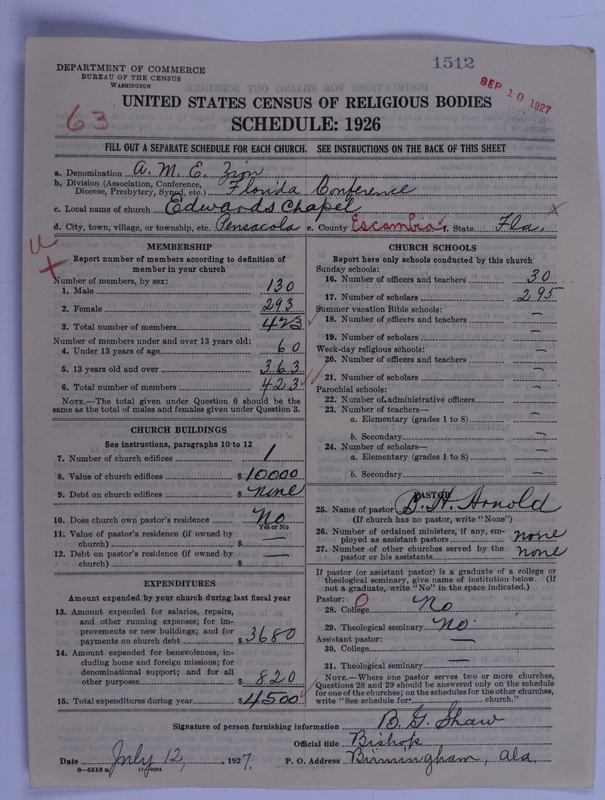 1512
DEPARTMENT OF COMMERCE
BUREAU OF THE CENSUS
WASHINGTON
SEP 10 1927
63
UNITED STATES CENSUS OF RELIGIOUS BODIES
SCHEDULE: 1926
FILL OUT A SEPARATE SCHEDULE FOR EACH CHURCH. SEE INSTRUCTIONS ON THE BACK OF THIS SHEET
a. Denomination A. M. E. Zion
b. Division (Association, Conference, Diocese, Presbytery, Synod, etc.) Florida Conference
c. Local name of church Edwards Chapel x
d. City, town, village, or township, etc. Pensacola e. County Escambia f. State Fla.
MEMBERSHIP
Report number of members according to definition of
member in your church
Number of members, by sex:
1. Male 130
2. Female 293
3. Total number of members 423
Number of members under and over 13 years old:
4. Under 13 years of age 60
5. 13 years old and over 363
6. Total number of members 423
NOTE.—The total given under Question 6 should be the
same as the total of males and females given under Question 3.
CHURCH BUILDINGS
See instructions, paragraphs 10 to 12
7. Number of church edifices 1
8. Value of church edifices $10000
9. Debt on church edifices $ None
10. Does church own pastor's residence No
Yes or No
11. Value of pastor's residence (if owned by
church) $ —
12. Debt on pastor's residence (if owned by
church) $ —
EXPENDITURES
Amount expended by your church during last fiscal year
13. Amount expended for salaries, repairs,
and other running expenses; for im-
provements or new buildings; and for
payments on church debt $3680
14. Amount expended for benevolences, in-
cluding home and foreign missions; for
denominational support; and for all
other purposes $ 820
15. Total expenditures during year $4500
CHURCH SCHOOLS
Report here only schools conducted by this church
Sunday schools:
16. Number of officers and teachers 30
17. Number of scholars 295
Summer vacation Bible schools:
18. Number of officers and teachers —
19. Number of scholars —
Week-day religious schools:
20. Number of officers and teachers —
21. Number of scholars —
Parochial schools:
22. Number of administrative officers —
23. Number of teachers—
a. Elementary (grades 1 to 8) —
b. Secondary —
24. Number of scholars—
a. Elementary (grades 1 to 8) —
b. Secondary —
PASTOR
25. Name of pastor B. H. Arnold
(If church has no pastor, write "None")
26. Number of ordained ministers, if any, em-
ployed as assistant pastors none
27. Number of other churches served by the
pastor or his assistants none
If pastor (or assistant pastor) is a graduate of a college or
theological seminary, give name of institution below. (If
not a graduate, write "No" in the space indicated.)
Pastor: 0
28. College No
29. Theological seminary No.
Assistant pastor: —
30. College
31. Theological seminary —
NOTE.—Where one pastor serves two or more churches,
Questions 28 and 29 should be answered only on the schedule
for one of the churches; on the schedules for the other churches,
write "See schedule for church."
Signature of person furnishing information B. G. Shaw
Official title Bishop
Date July 12, 1927. P. O. Address Birmingham, Ala.
8-5518 a